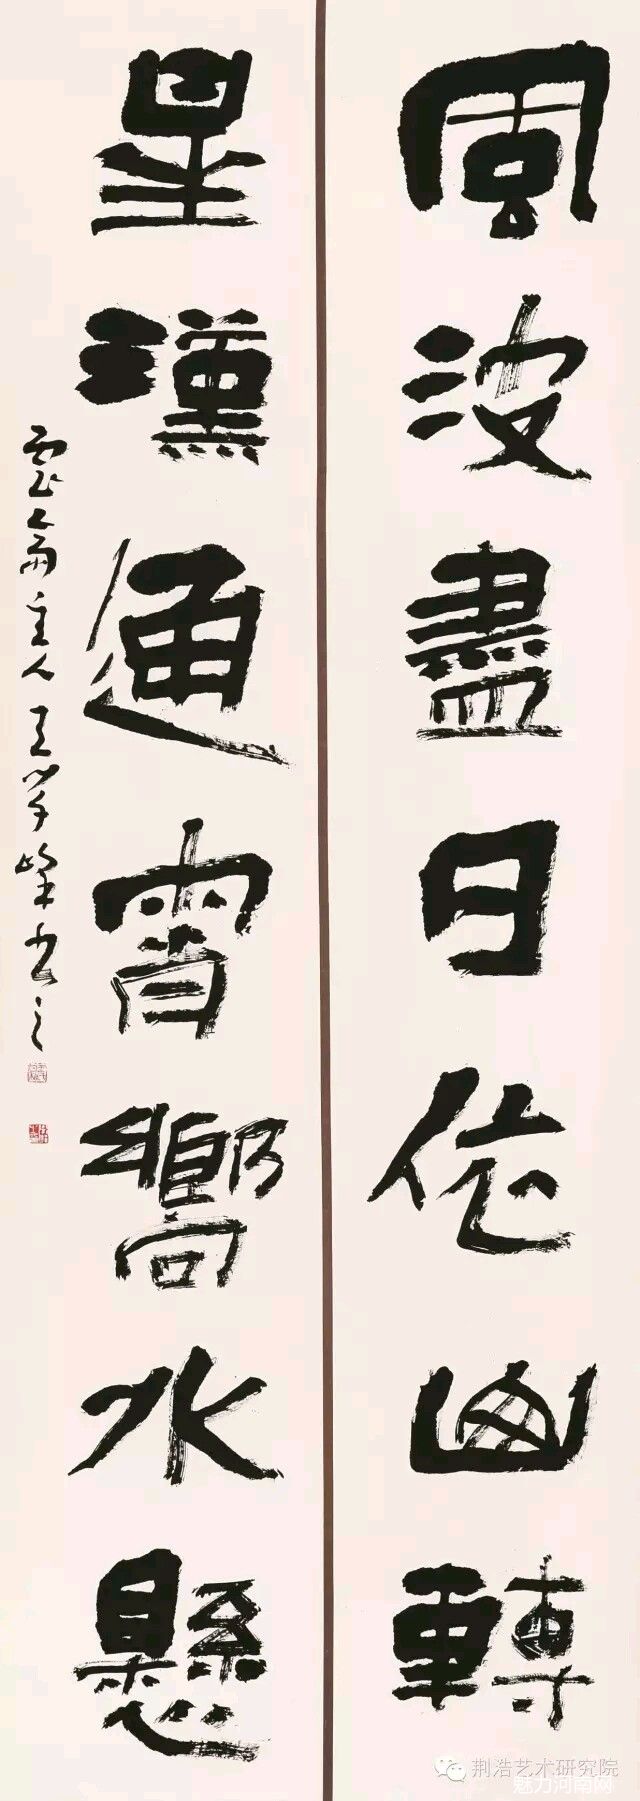 風波盡日依山轉
星漢通霄嚮水懸
齋主人王學峰書之
荆浩艺术研究院
魅力河南网